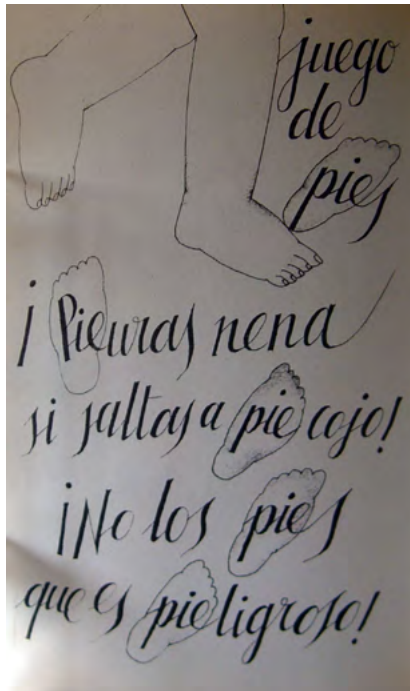 juego
de
pies
¡Pieuras nena
si saltas a pie cojo!
¡No los pies
que es pieligroso!